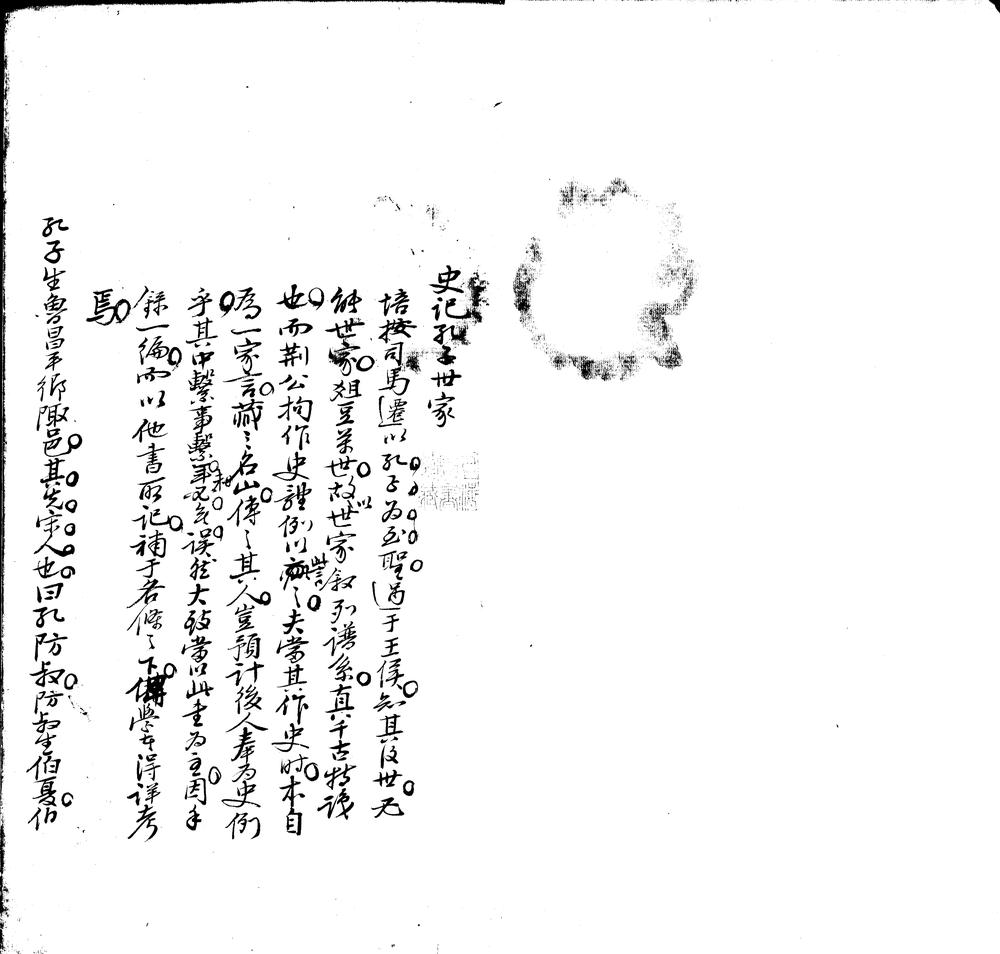 史记孔子世家
培按司馬遷以孔子為至聖過于王侯知其後世无
能世家俎豆萊世故以世家叙列譜系真千古特識
也而荆公拘作史體例以訾之夫當其作史时本自
為一家言藏之名山傳之其人豈預計後人奉為史例
乎其中繫事繫年不無誤然大致當以此書為主因手
錄一編而以他書所記補于各條之下俾學者得詳考
焉
孔子生魯昌平鄉陬邑其先宋人也曰孔防叔防叔生伯夏伯